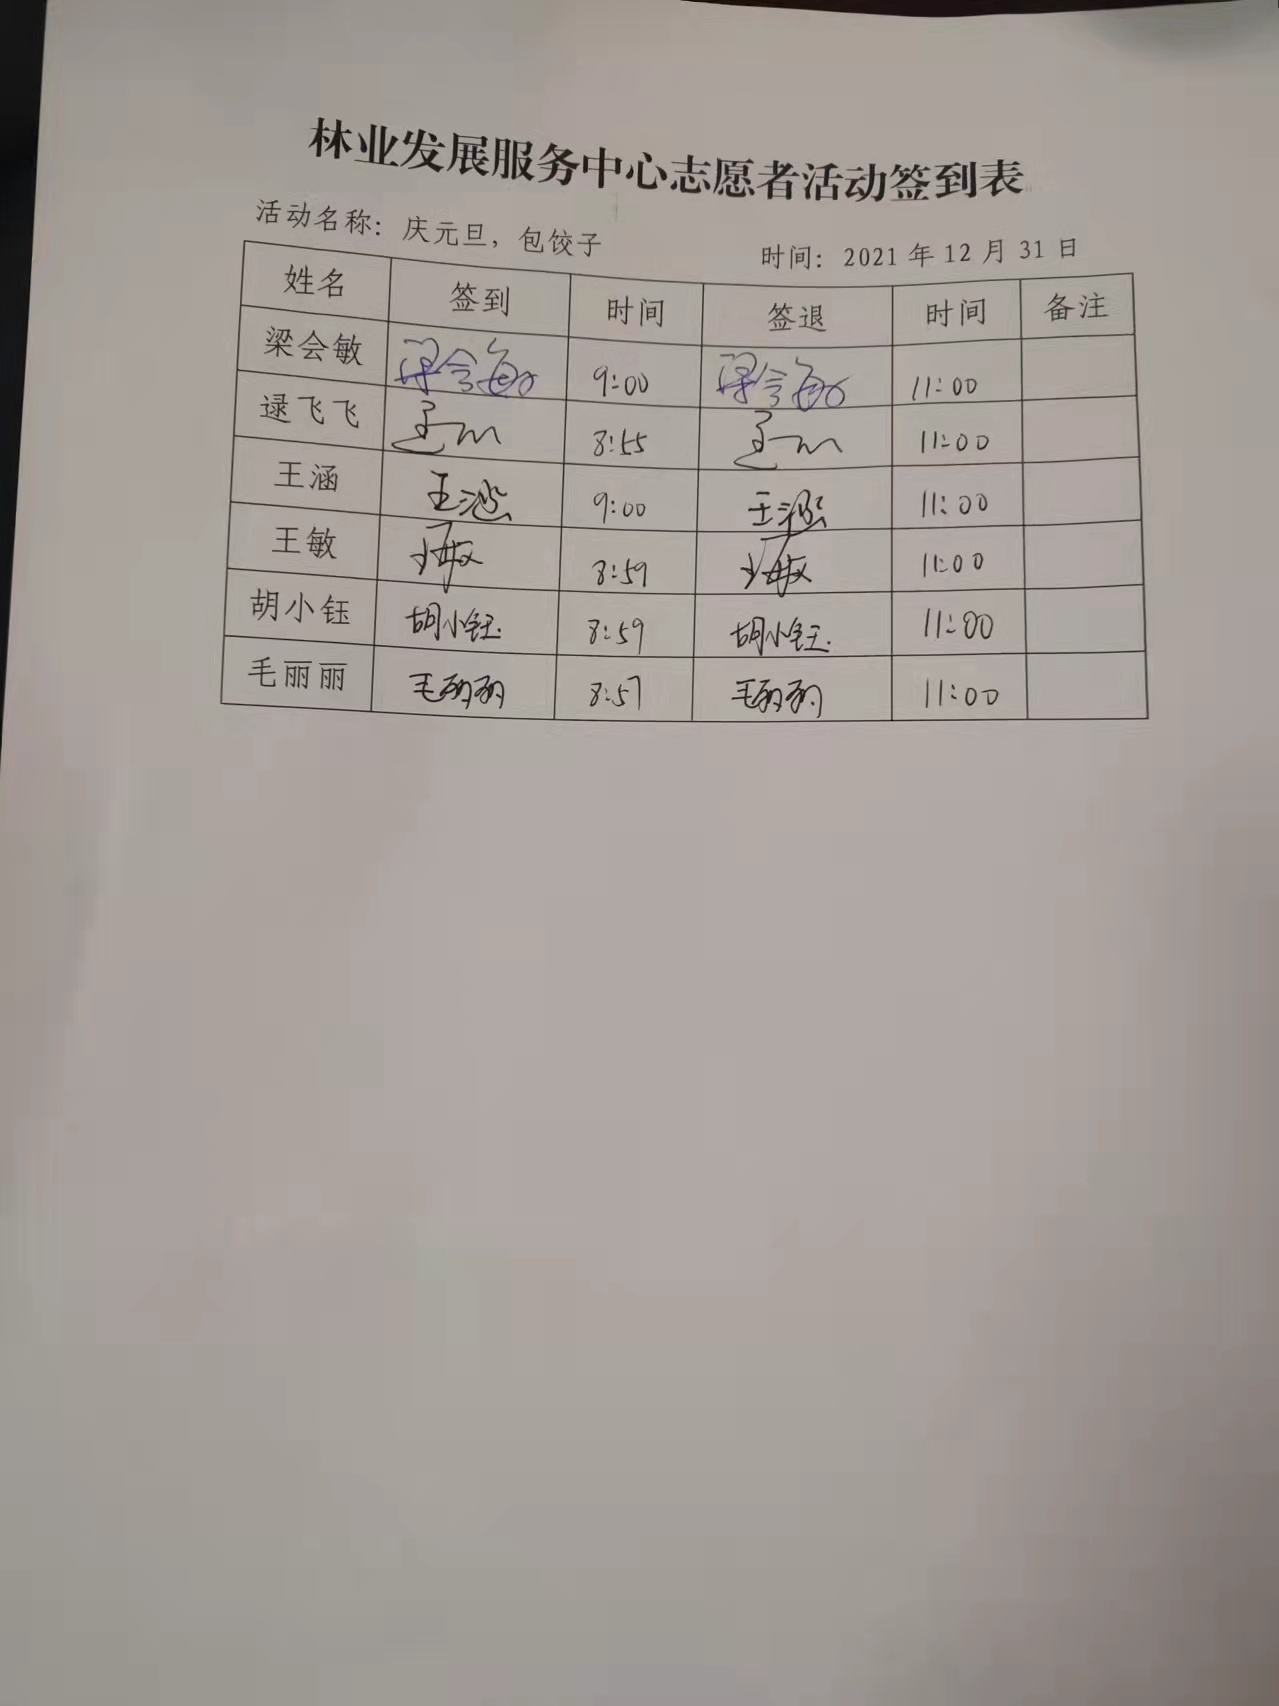 林业发展服务中心志愿者活动签到表
活动名称：庆元旦，包饺子 时间：2021 年 12 月 31 日
姓名 签到 时间 签退 时间 备注
梁会敏 梁会敏 9:00 梁会敏 11:00
逯飞飞 8:55 11:00
王涵 王涵 9:00 王涵 11:00
王敏 王敏 8:59 王敏 11:00
胡小钰 胡小钰 8:59 胡小钰 11:00
毛丽丽 毛丽丽 8:57 毛丽丽 11:00